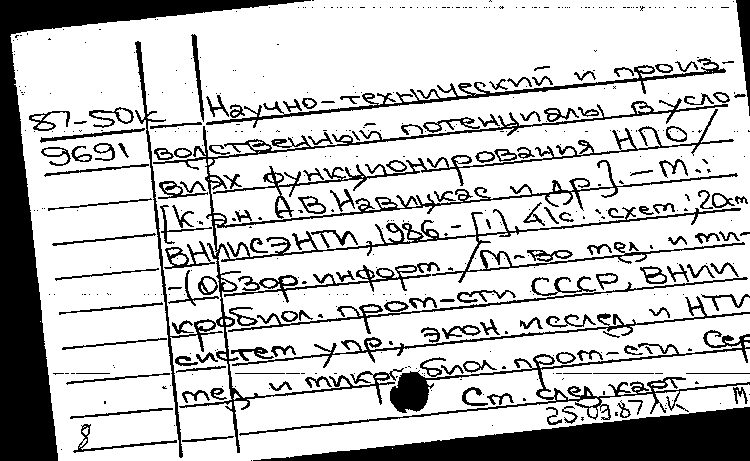 87-50к Научно-технический и произ-
9691 водственный потенциалы в усло-
виях функционирования НПО /
[К.э.н. А.В.Навицкас и др.]. — М.:
ВНИИСЭНТИ, 1986. - [1], 41с. : схем.; 20см
-(Обзор. информ. / М-во мед. и ми-
кробиол. пром-сти СССР, ВНИИ
систем упр., экон. исслед. и НТИ
мед. и микробиол. пром-сти. Сер
Ст. след. карт.
25.09.87 ЛК М
8